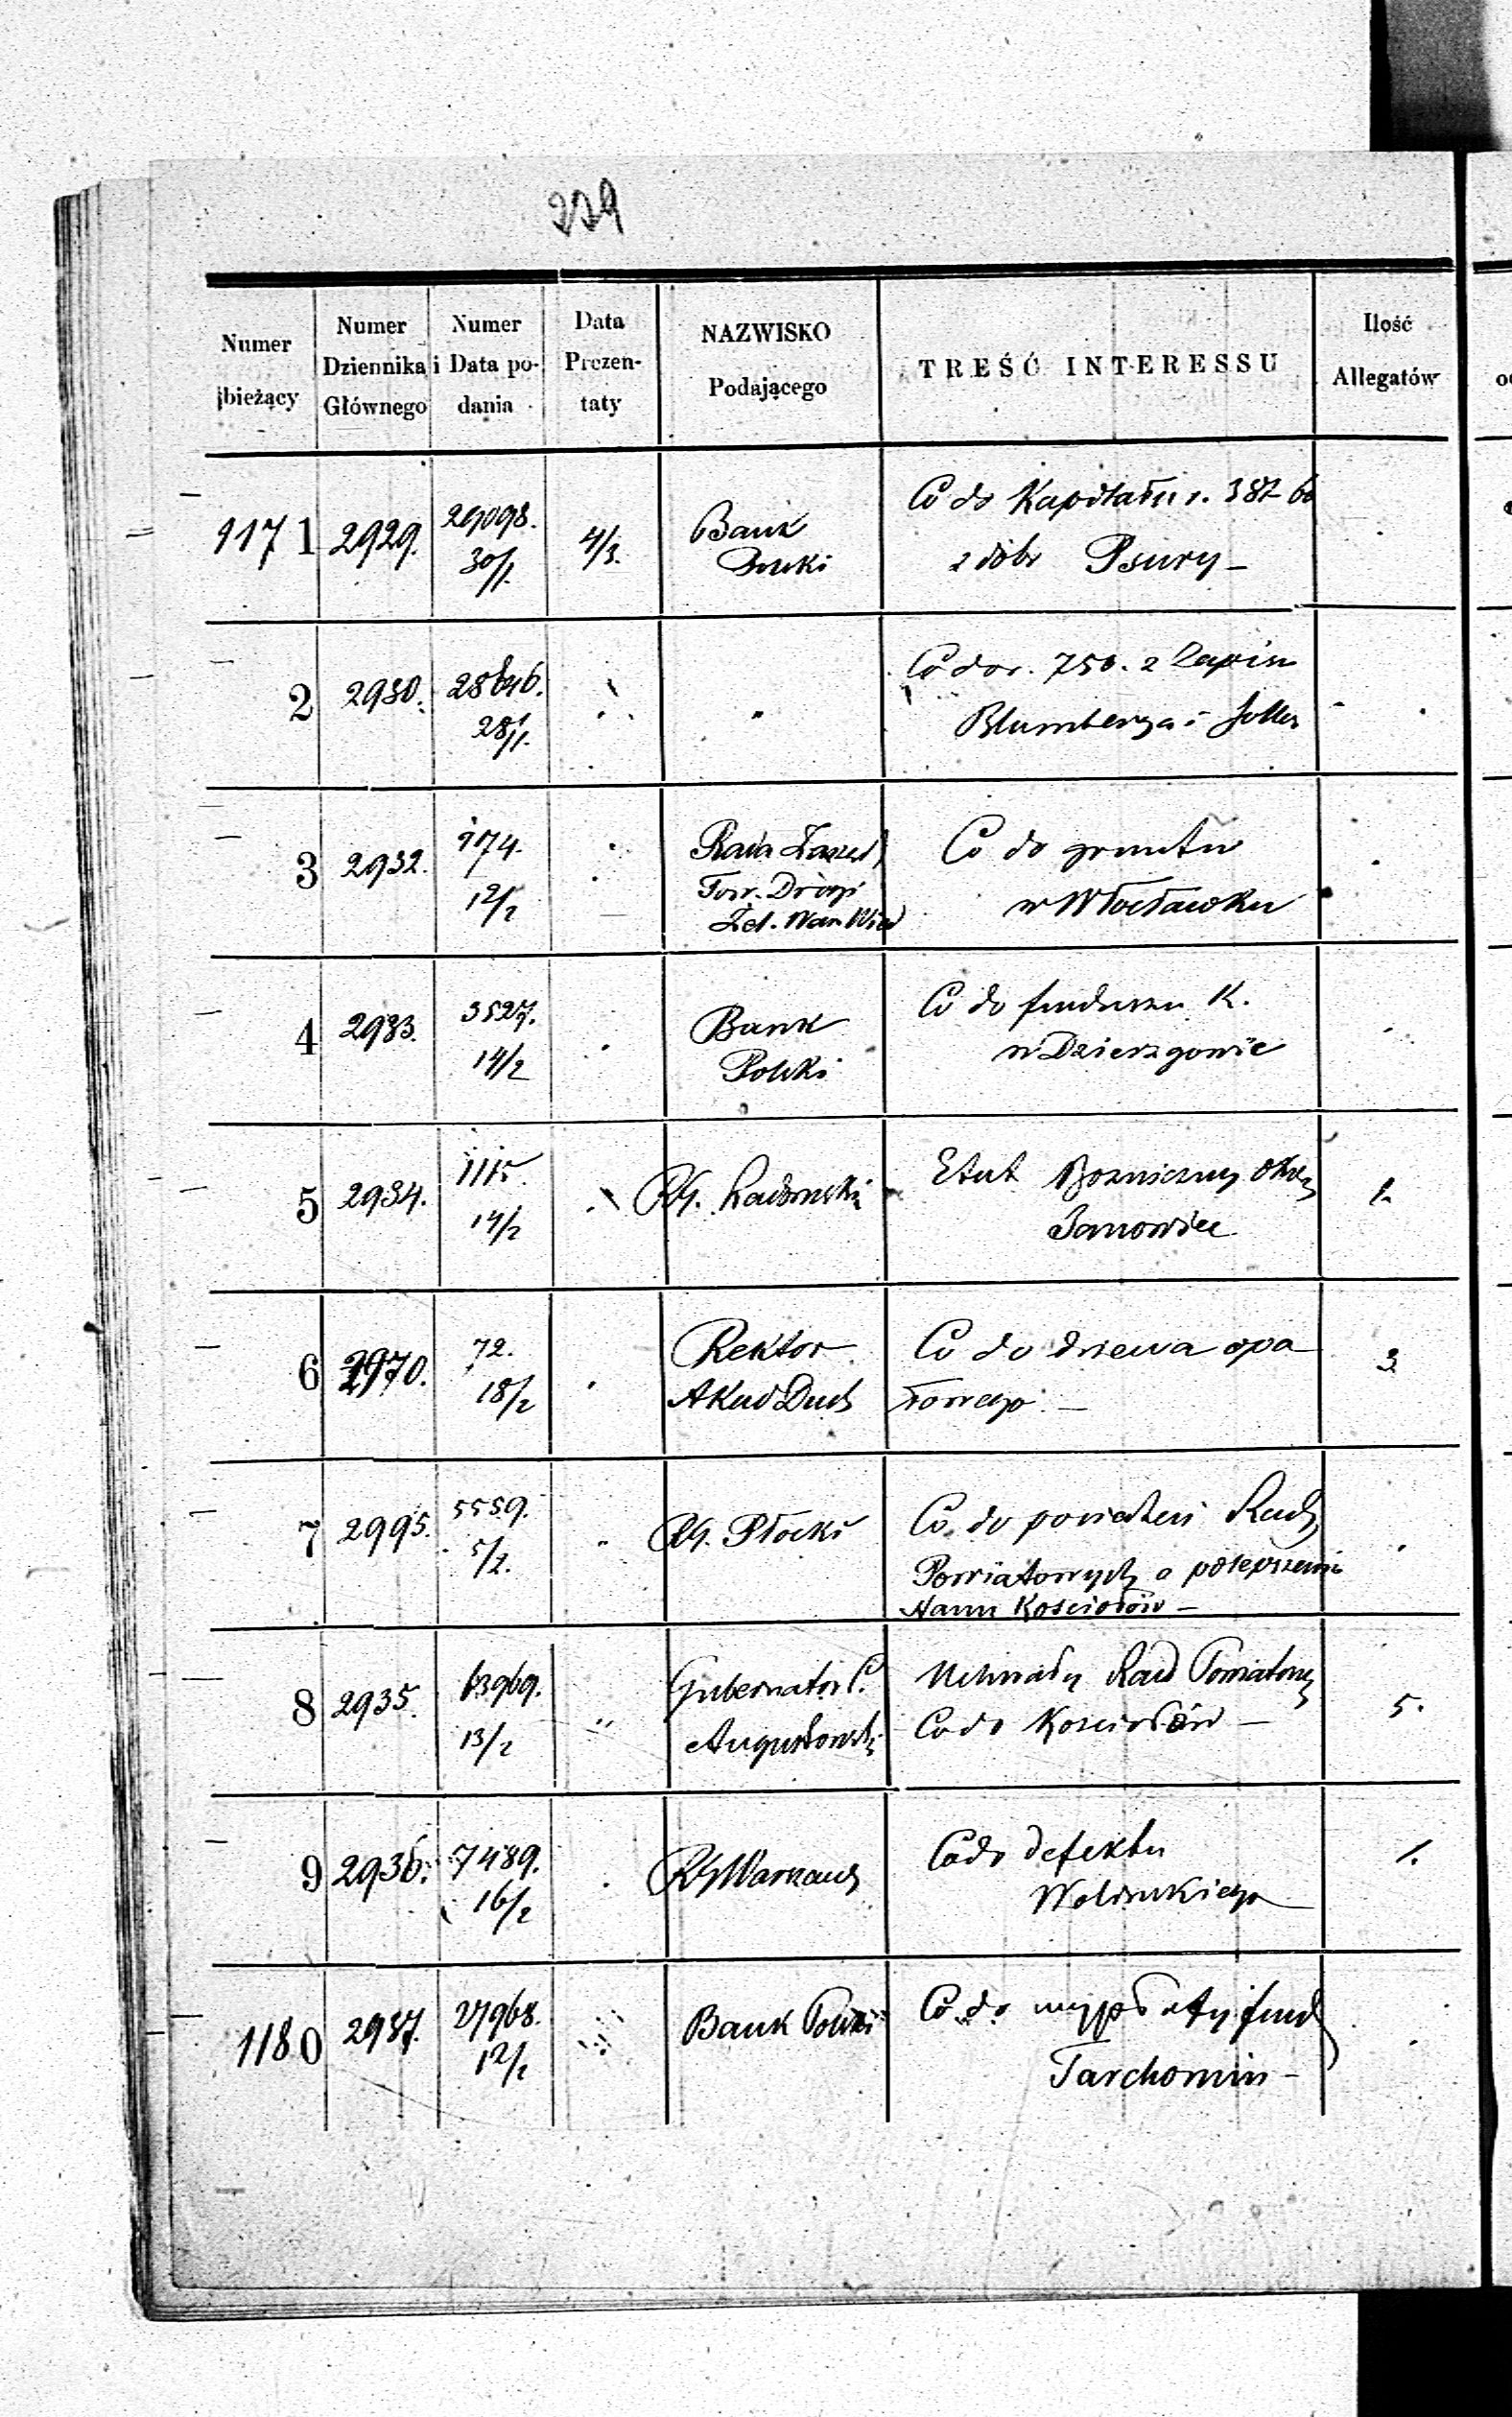 229
Numer bieżący
Numer Dziennika Głównego
Numer i Data podania
Data Prezentaty
NAZWISKO Podającego
TREŚĆ INTERESSU
Ilość Allegatów
1171 2929. 29098. 30/1. 4/3. Bank Polski Co do Kapitału r. 387 60
z dóbr Psury –
2 2930. 28646. 28/1. " Co do r. 750. z Zapisu
Blumberga i
3 2932. 974. 12/2 Rada Zarząd Tow. Drogi Żel. War Wied Co do gruntu
w Włocławku
4 2933. 3527. 14/2 Bank Polski Co do funduszu K.
w Dzierzgowie
5 2934. 1115. 14/2 RG. Radomski Etat Bożniczny Okr
Janowiec 1.
6 2970. 72. 18/2 Rektor Akad Duch Co do drzewa opa
łowego. – 3
7 2995. 5559. 5/2. " RG. Płocki Co do Rad
Powiatowych o polepszenie
Kościołów –
8 2935. 63969. 13/2 " Gubernator C. Augustowski Uchwały Rad Powiatowy
Co do Kościołów – 5.
9 2936. 7489. 16/2 RG Warszaws Co do defektu
Woliń­skiego 1.
1180 2937. 27968. 12/2 Bank Polski Co do wypłaty fund
Tarchomin –